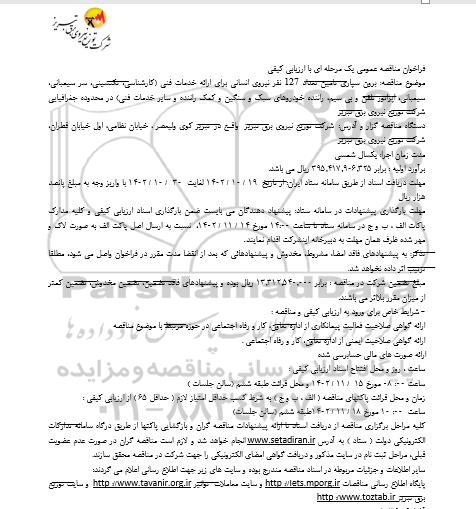 شرکت توزیع نیروی برق تبریز
فراخوان مناقصه عمومی یک مرحله ای با ارزیابی کیفی
موضوع مناقصه: برون سپاری تامین تعداد 127 نفر نیروی انسانی برای ارائه خدمات فنی (کارشناسی، تکنسینی، سر سیمبانی،
سیمبانی، اپراتور تلفن و بی سیم، راننده خودروهای سبک و سنگین و کمک راننده و سایر خدمات فنی) در محدوده جغرافیایی
شرکت توزیع نیروی برق تبریز
دستگاه مناقصه گزار و آدرس: شرکت توزیع نیروی برق تبریز واقع در تبریز کوی ولیعصر، خیابان نظامی، اول خیابان قطران،
شرکت توزیع نیروی برق تبریز
مدت زمان اجرا: یکسال شمسی
برآورد اولیه: برابر ۳۹۵,۴۱۷,۹۰۶,۳۲۵ ریال می باشد.
مهلت دریافت اسناد از طریق سامانه ستاد ایران از تاریخ ۱۹ / ۱۰ / ۱۴۰۲ لغایت ۳۰ / ۱۰ / ۱۴۰۲ با واریز وجه به مبلغ پانصد
هزار ریال
مهلت بارگذاری پیشنهادات در سامانه ستاد: پیشنهاد دهندگان می بایست ضمن بارگذاری اسناد ارزیابی کیفی و کلیه مدارک
پاکات الف ، ب و ج در سامانه ستاد تا ساعت ۱۴:۰۰ مورخ ۱۴ / ۱۱ / ۱۴۰۲، نسبت به ارسال اصل پاکت الف به صورت لاک و
مهر شده ظرف همان مهلت به دبیرخانه اینشرکت اقدام نمایند.
تذکر: به پیشنهادهای فاقد امضا، مشروط، مخدوش و پیشنهادهائی که بعد از انقضا مدت مقرر در فراخوان واصل می شود، مطلقا
ترتیب اثر داده نخواهد شد.
مبلغ تضمین شرکت در مناقصه : برابر ۱۳,۳۱۲,۵۴۰,۰۰۰ ریال بوده و پیشنهادهای فاقد تضمین، تضمین مخدوش، تضمین کمتر
از میزان مقرر بلااثر می باشند.
- شرایط خاص برای ورود به ارزیابی کیفی و مناقصه :
ارائه گواهی صلاحیت فعالیت پیمانکاری از اداره تعاون، کار و رفاه اجتماعی در حوزه مرتبط با موضوع مناقصه
ارائه گواهی صلاحیت ایمنی از اداره تعاون، کار و رفاه اجتماعی .
ارائه صورت های مالی حسابرسی شده
ساعت ، روز و محل افتتاح اسناد ارزیابی کیفی :
ساعت ۰۸:۰۰ مورخ ۱۵ / ۱۱ / ۱۴۰۲ و محل قرائت طبقه ششم (سالن جلسات )
زمان و محل قرائت پاکتهای مناقصه ( الف ، ب و ج ) به شرط کسب حداقل امتیاز لازم ( حداقل ۶۵ ) از ارزیابی کیفی :
ساعت ۱۰:۰۰ مورخ ۱۸ / ۱۱ / ۱۴۰۲ طبقه ششم (سالن جلسات)
کلیه مراحل برگزاری مناقصه از دریافت اسناد تا ارائه پیشنهادات مناقصه گران و بازگشایی پاکتها از طریق درگاه سامانه تدارکات
الکترونیکی دولت ( ستاد ) به آدرس www.setadiran.ir انجام خواهد شد و لازم است مناقصه گران در صورت عدم عضویت
قبلی، مراحل ثبت نام در سایت مذکور و دریافت گواهی امضای الکترونیکی را جهت شرکت در مناقصه محقق سازند.
سایر اطلاعات و جزئیات مربوطه در اسناد مناقصه مندرج بوده و سایت های زیر جهت اطلاع رسانی اعلام می گردند:
پایگاه اطلاع رسانی مناقصات http://iets.mporg.ir و سایت معاملات توانیر http://www.tavanir.org.ir و سایت توزیع
برق تبریز http:/www.toztab.ir